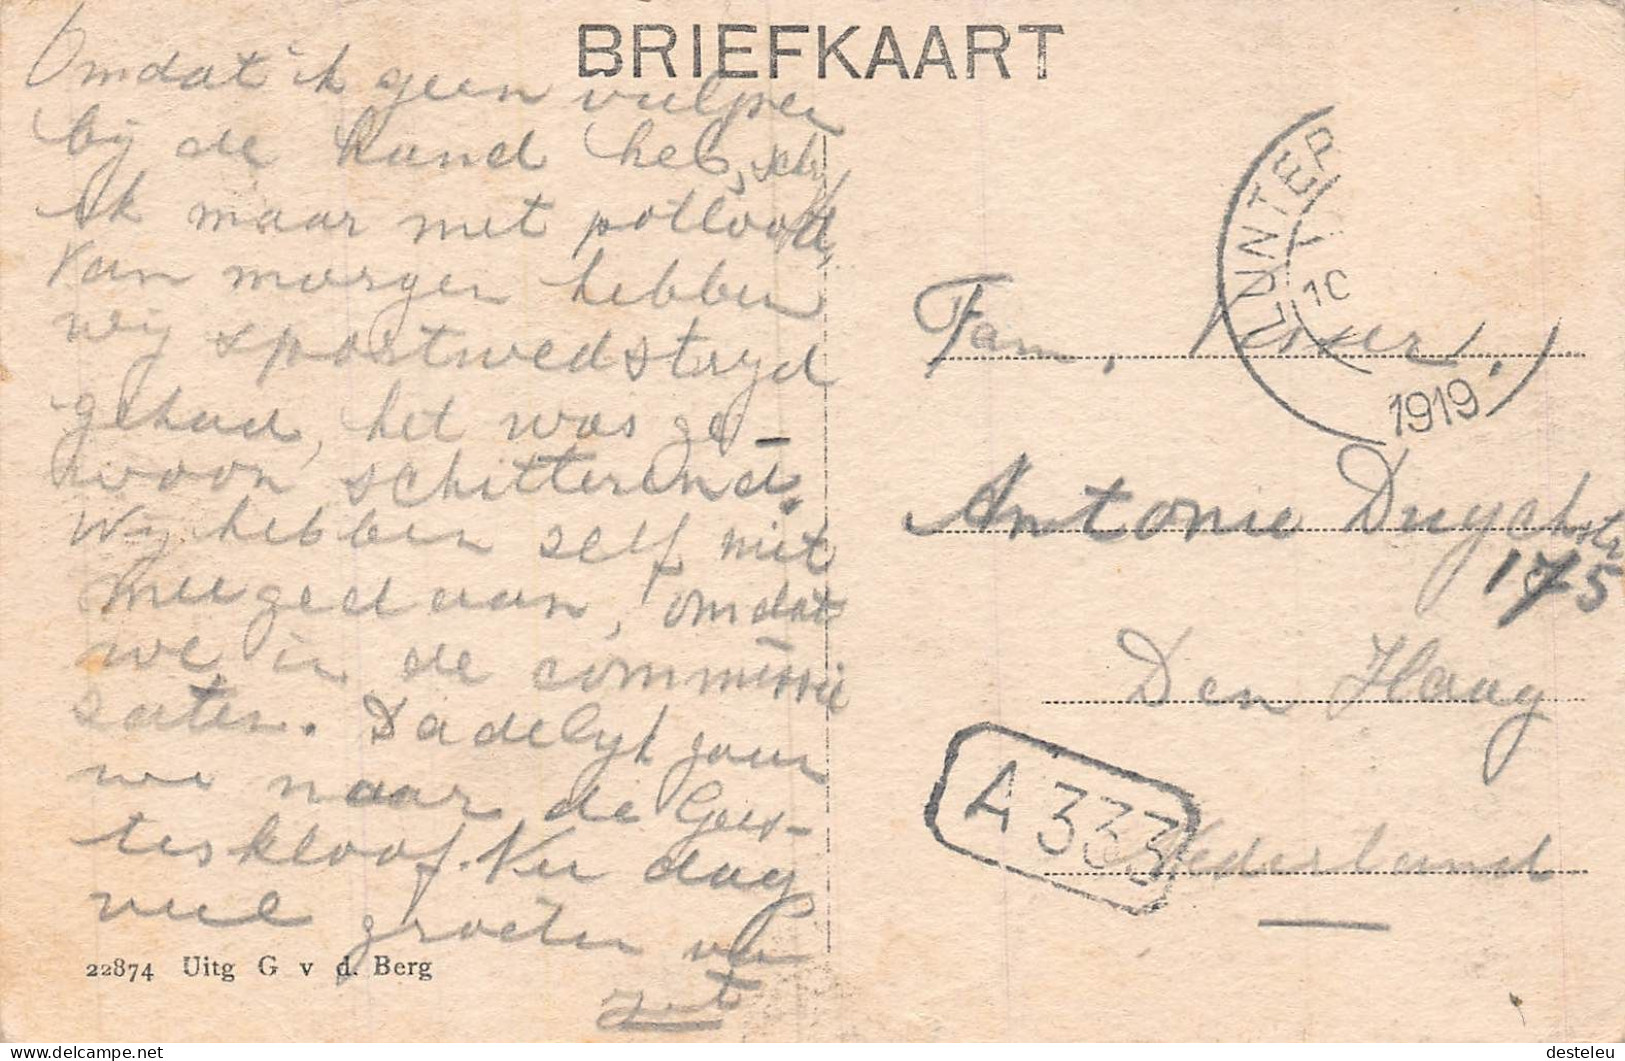 BRIEFKAART
Omdat ik geen vulpen
bij de hand heb, schrijf
ik maar met potlood,
Van morgen hebben
wij sportwedstryd
gehad, het was ge-
woon schitterend.
Wy hebben self niet
meegedaan, omdat
we in de commissie
zaten. Dadelyk gaan
we naar de Gees-
teskloof. Nu dag
veel groeten van
22874 Uitg G v d. Berg
LUNTEREN
10
1919
Fam.
Antonie Duyckstr
175
Den Haag
A 333
Nederland
desteleu